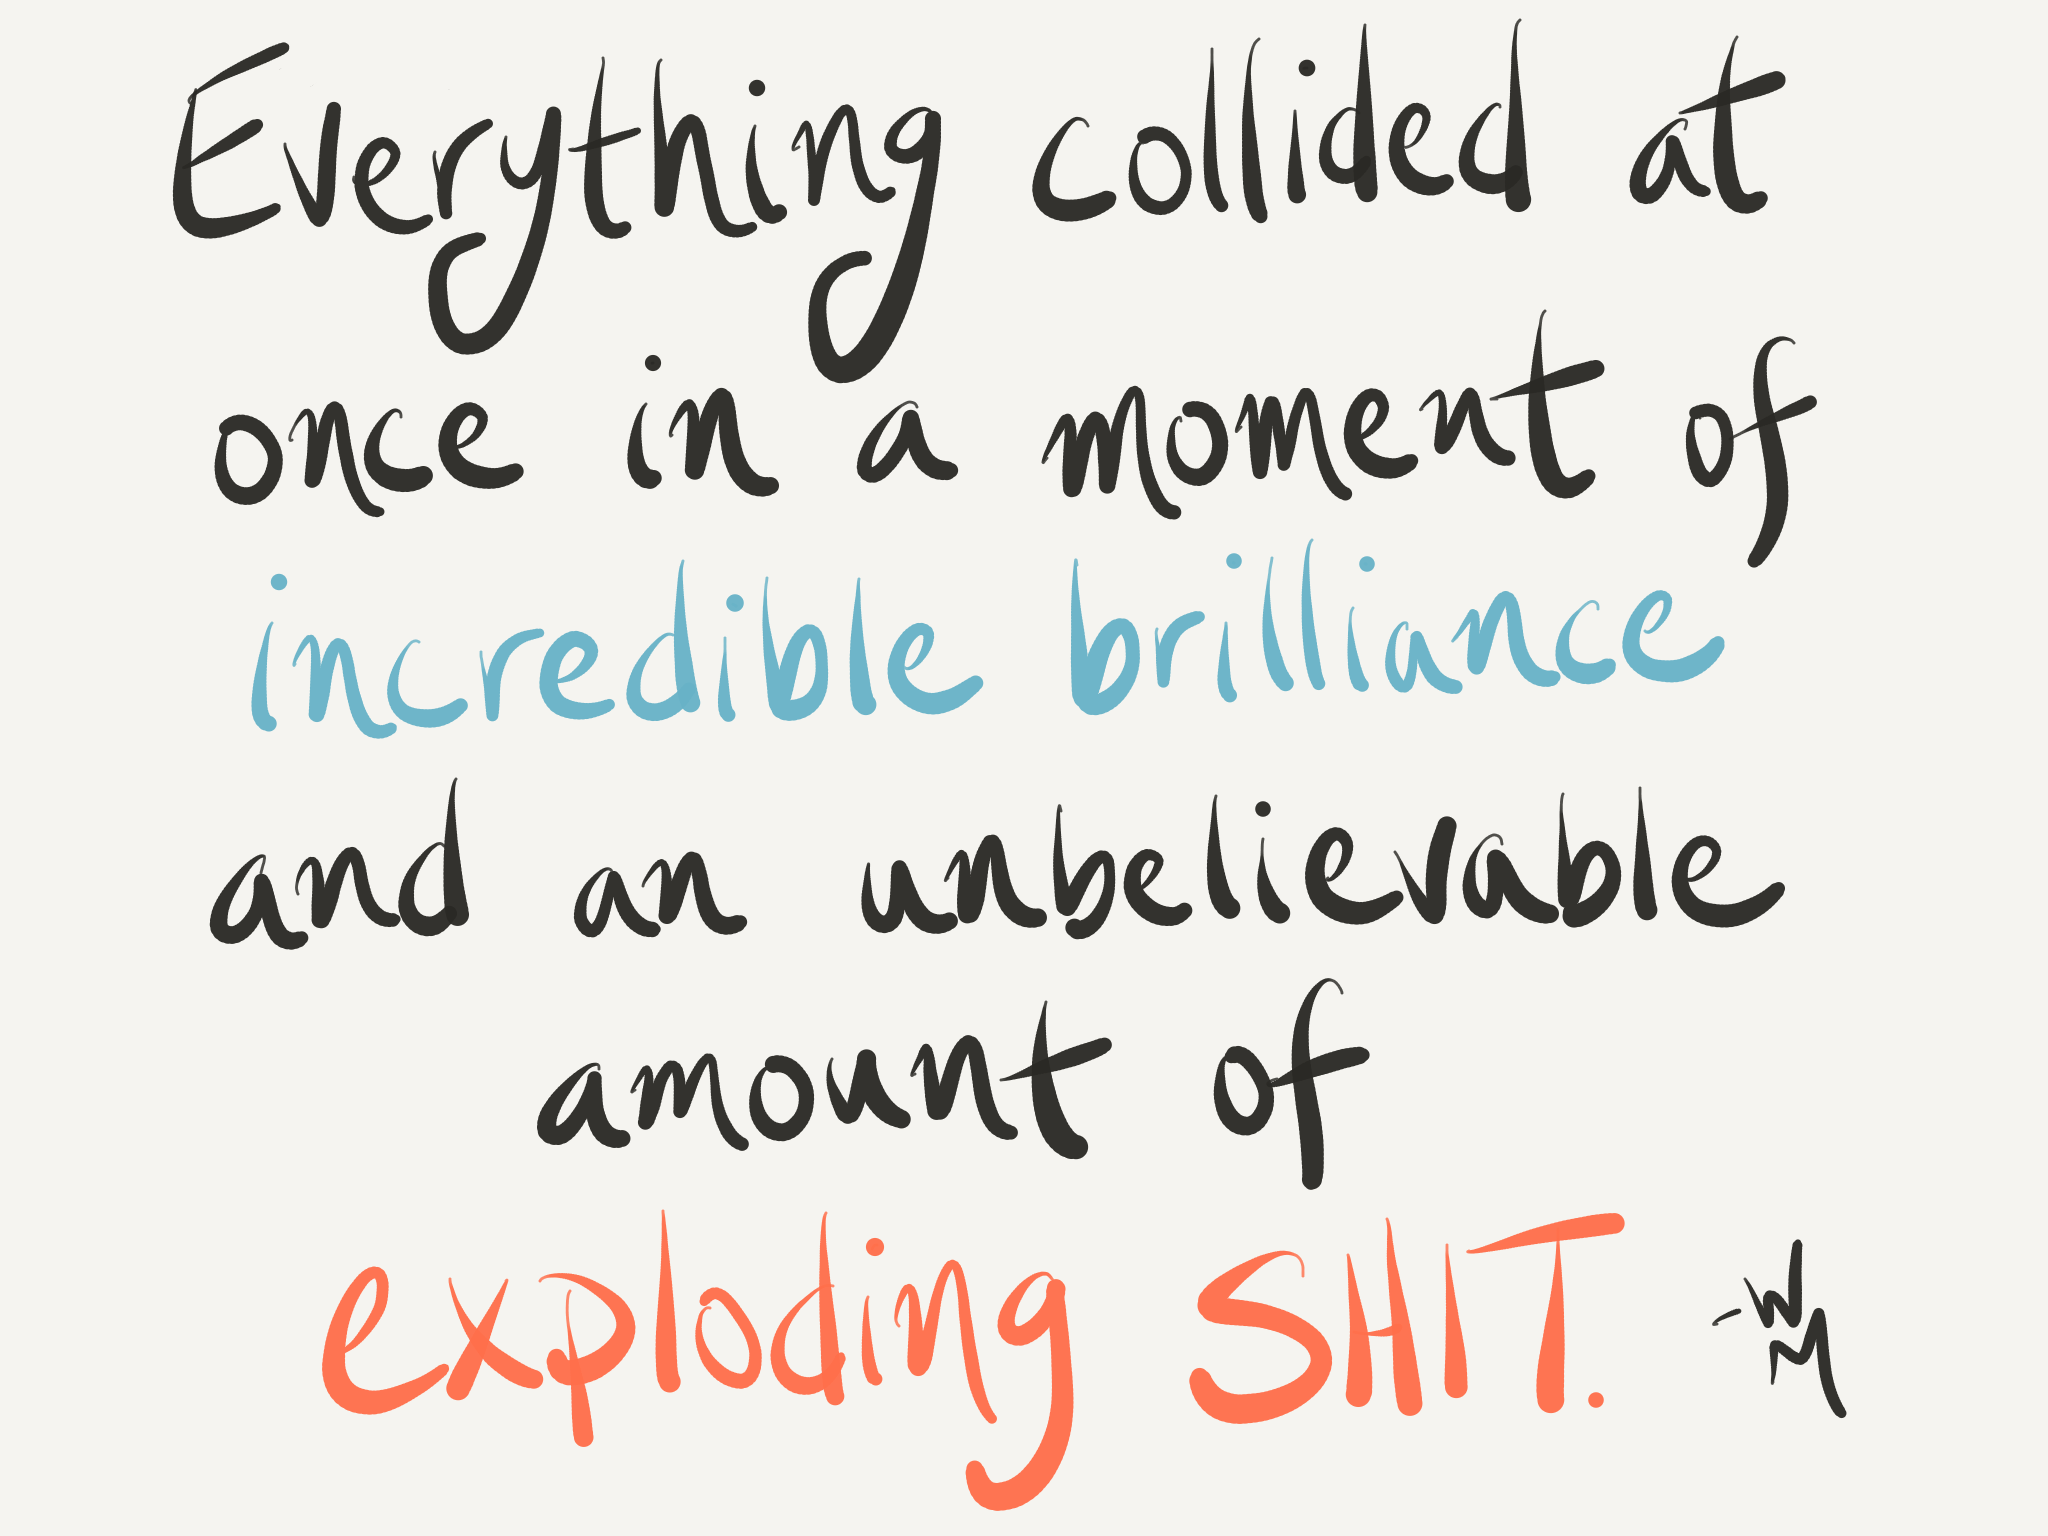 Everything collided at
once in a moment of
incredible brilliance
and an unbelievable
amount of
exploding SHIT.
-WM